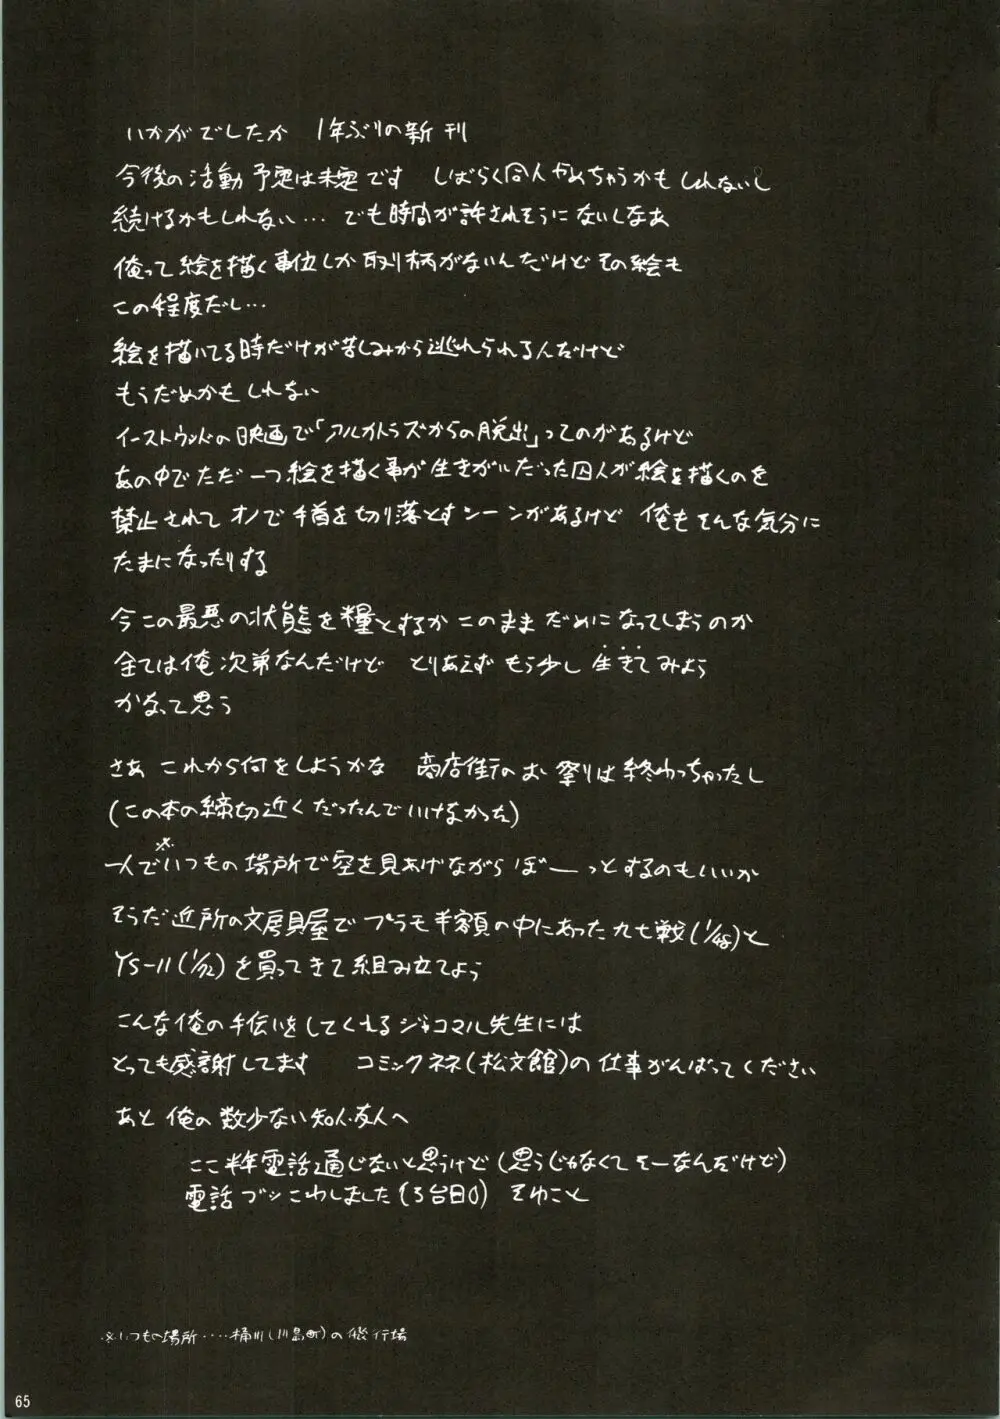 いかがでしたか　1年ぶりの新刊
今後の活動予定は未定です　しばらく同人やめちゃうかもしれないし
続けるかもしれない… でも時間が許されそうにないしなぁ
俺って絵を描く事位しか取り柄がないんだけど その絵も
この程度だし…
絵を描いてる時だけが苦しみから逃れられる人だけど
もうだめかもしれない
イーストウッドの映画で「アルカトラズからの脱出」ってのがあるけど
あの中でただ一つ絵を描く事が生きがいだった囚人が絵を描くのを
禁止されて オノで手首を切り落とすシーンがあるけど 俺もそんな気分に
たまになったりする
今この最悪の状態を糧とするか このまま だめになってしまうのか
全ては俺次第なんだけど　とりあえず もう少し 生きてみよう
かなって思う
さぁ これから何をしようかな　商店街のお祭りは終わっちゃったし
(この本の締切近くだったんでいけなかった)
一人で※いつもの場所で空を見あげながら ぼーっとするのもいいか
そうだ近所の文房具屋で プラモ半額の中にあった九七戦(1/48)と
YS-11(1/72)を買ってきて組み立てよう
こんな俺の手伝いをしてくれるジャコマル先生には
とっても感謝してます　コミックネネ(松文館)の仕事がんばってください
あと 俺の数少ない知人・友人へ
ここ半年電話通じないと思うけど(思うじゃなくてそーなんだけど)
電話ブッこわしました(3台目0) そゆこと
※いつもの場所‥‥桶川(川島町)の飛行場
65